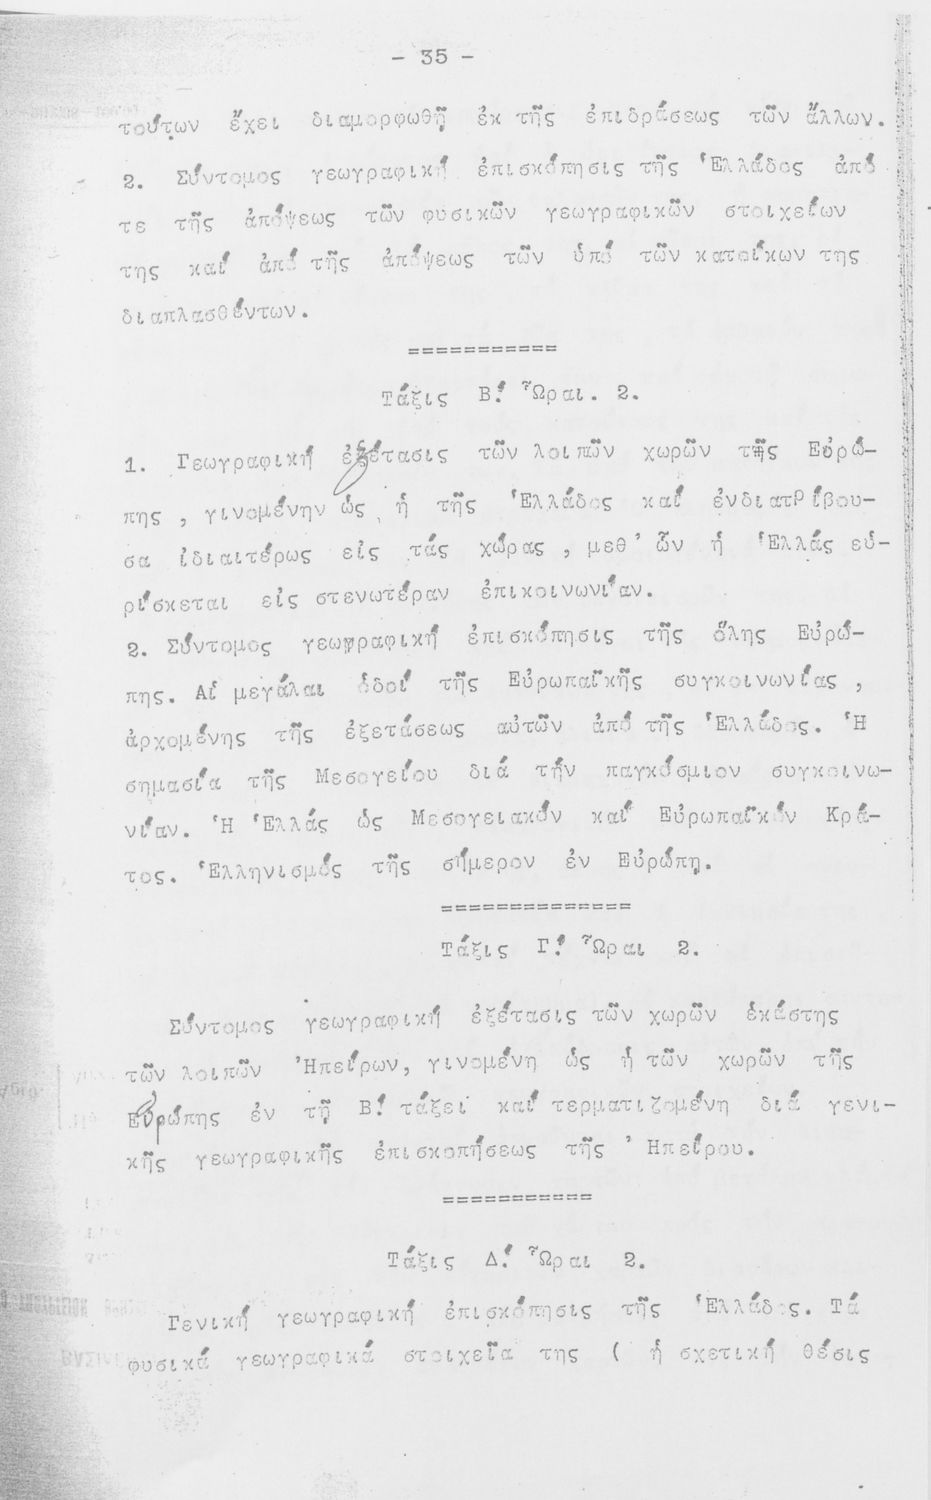 - 35 -
τούτων ἔχει διαμορφωθῆ ἐκ τῆς ἐπιδράσεως τῶν ἄλλων.
2. Σύντομος γεωγραφική ἐπισκόπησις τῆς Ἑλλάδος ἀπό
τε τῆς ἀπόψεως τῶν φυσικῶν γεωγραφικῶν στοιχείων
της καί ἀπό τῆς ἀπόψεως τῶν ὑπό τῶν κατοίκων της
διαπλασθέντων.
===========
Τάξις Β! Ὧραι. 2.
1. Γεωγραφική ἐξέτασις τῶν λοιπῶν χωρῶν τῆς Εὐρώ-
πης , γινομένην ὡς ἡ τῆς Ἑλλάδος καί ἐνδιατρίβου-
σα ἰδιαιτέρως εἰς τάς χώρας , μεθ' ὧν ἡ Ἑλλάς εὑ-
ρίσκεται εἰς στενωτέραν ἐπικοινωνίαν.
2. Σύντομος γεωγραφική ἐπισκόπησις τῆς ὅλης Εὐρώ-
πης. Αἱ μεγάλαι ὁδοί τῆς Εὐρωπαϊκῆς συγκοινωνίας ,
ἀρχομένης τῆς ἐξετάσεως αὐτῶν ἀπό τῆς Ἑλλάδος. Ἡ
σημασία τῆς Μεσογείου διά τήν παγκόσμιον συγκοινω-
νίαν. Ἡ Ἑλλάς ὡς Μεσογειακόν καί Εὐρωπαϊκόν Κρά-
τος. Ἑλληνισμός τῆς σήμερον ἐν Εὐρώπῃ.
==============
Τάξις Γ! Ὧραι 2.
Σύντομος γεωγραφική ἐξέτασις τῶν χωρῶν ἑκάστης
τῶν λοιπῶν Ἠπείρων, γινομένη ὡς ἡ τῶν χωρῶν τῆς
Εὐρώπης ἐν τῇ Β! τάξει καί τερματιζομένη διά γενι-
κῆς γεωγραφικῆς ἐπισκοπήσεως τῆς Ἠπείρου.
===========
Τάξις Δ! Ὧραι 2.
Γενική γεωγραφική ἐπισκόπησις τῆς Ἑλλάδος. Τά
φυσικά γεωγραφικά στοιχεῖα της ( ἡ σχετική θέσις